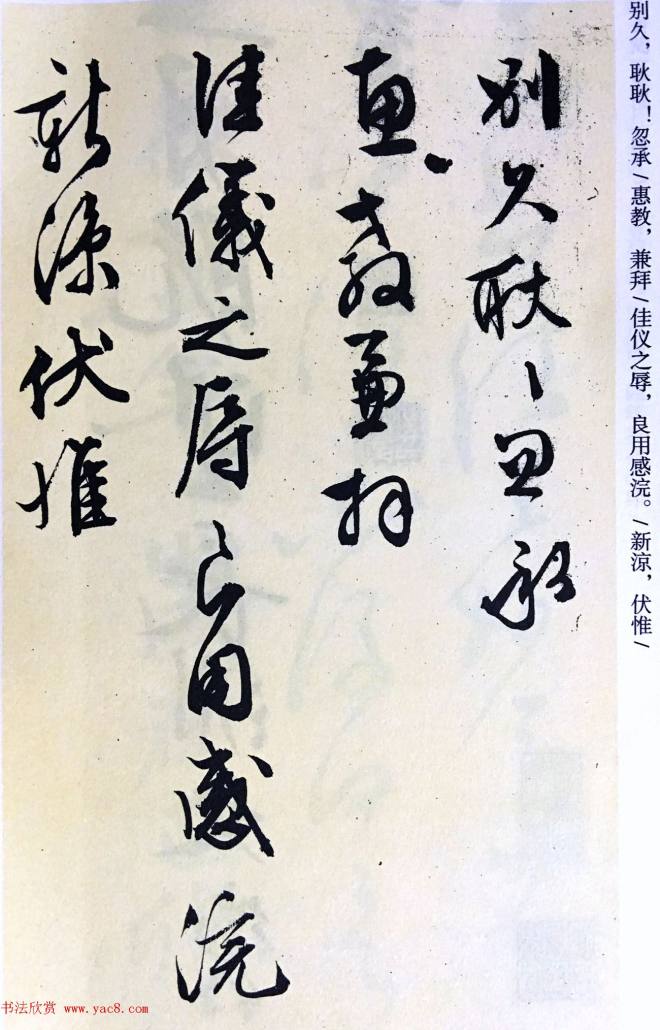 别久耿〻忽承
惠教兼拜
佳儀之辱良用感浣
新涼伏惟
别久，耿耿！忽承/惠教，兼拜/佳仪之辱，良用感浣。/新涼，伏惟/
书法欣赏 www.yac8.com